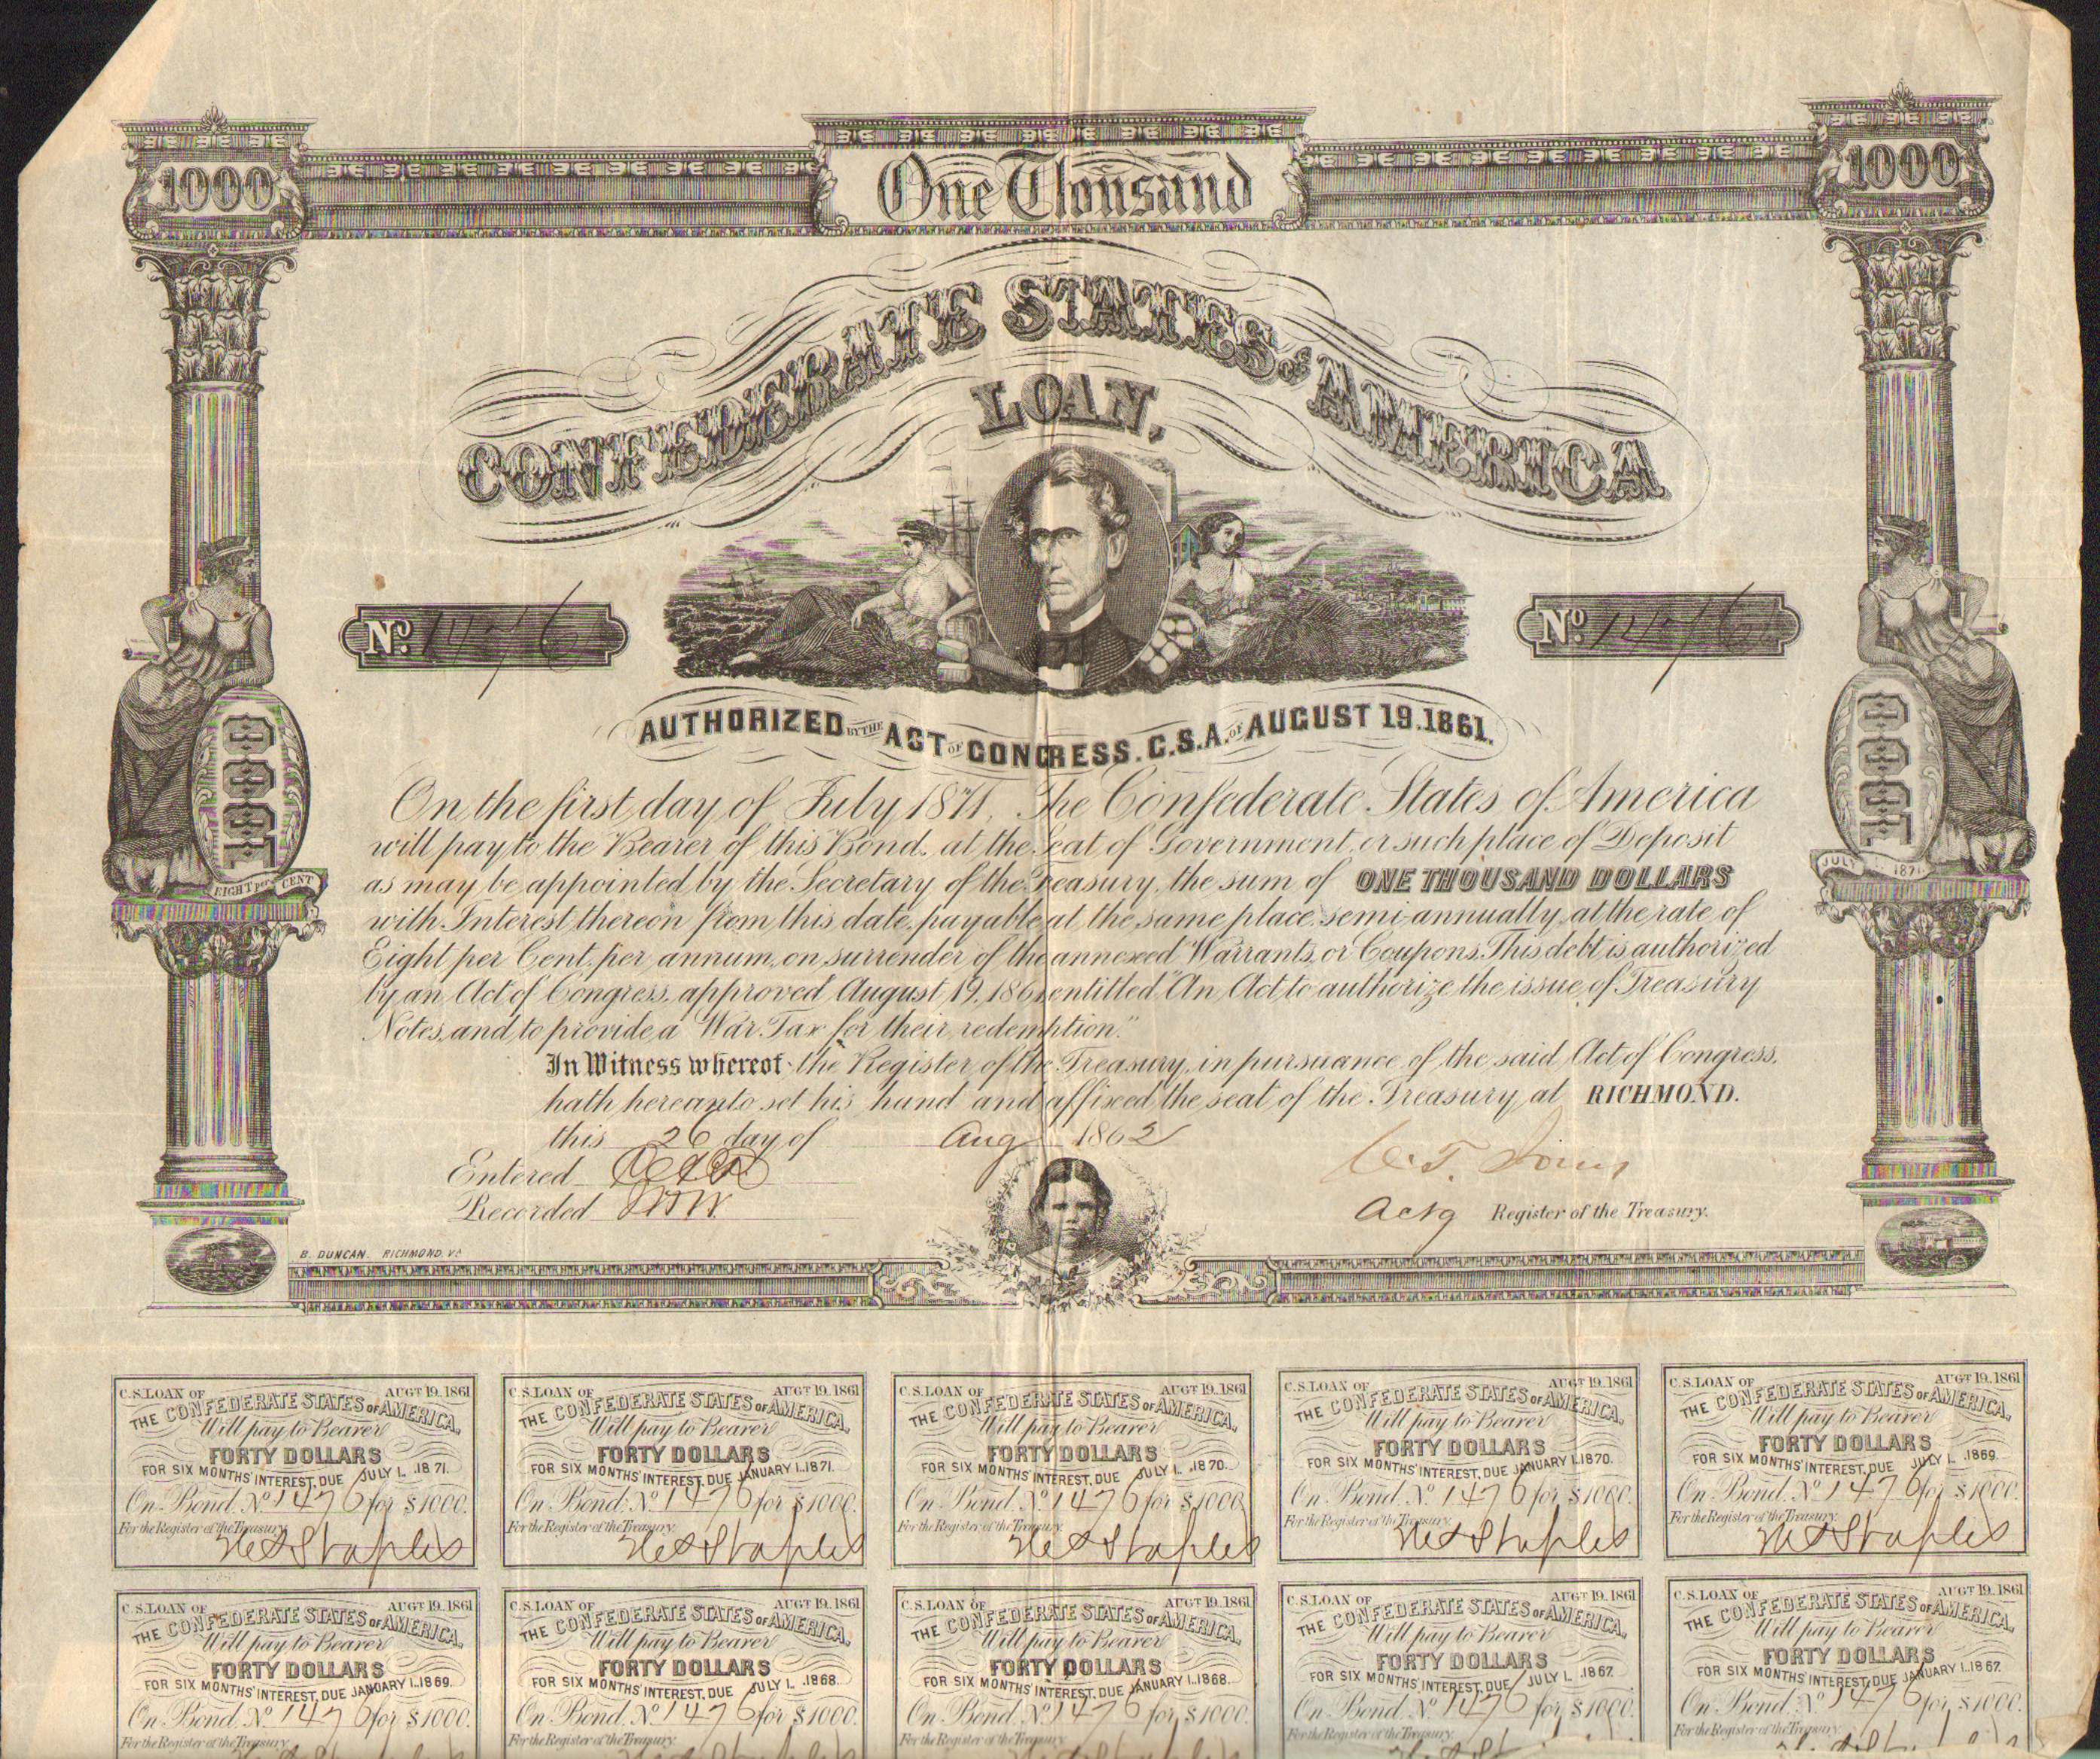 1000 One Thousand 1000
CONFEDERATE STATES OF AMERICA
LOAN,
No. 1476 No. 1476
AUTHORIZED BY THE ACT OF CONGRESS. C.S.A. OF AUGUST 19.1861.
1000 1000
On the first day of July 1871, The Confederate States of America
will pay to the Bearer of this Bond, at the Seat of Government, or such place of Deposit
as may be appointed by the Secretary of the Treasury, the sum of ONE THOUSAND DOLLARS
EIGHT per CENT JULY 1 1871
with Interest thereon from this date, payable at the same place, semi-annually, at the rate of
Eight per Cent. per annum, on surrender of the annexed Warrants, or Coupons. This debt is authorized
by an Act of Congress, approved August 19, 1861, entitled "An Act to authorize the issue of Treasury
Notes, and to provide a War Tax for their redemption."
In Witness whereof the Register of the Treasury, in pursuance of the said Act of Congress,
hath hereunto set his hand and affixed the seal of the Treasury, at RICHMOND.
this 26 day of Aug 1862
Entered
Recorded
Actg Register of the Treasury.
B. DUNCAN. RICHMOND. VA.
C.S. LOAN OF AUGT 19. 1861
THE CONFEDERATE STATES OF AMERICA,
Will pay to Bearer
FORTY DOLLARS
FOR SIX MONTHS' INTEREST, DUE JULY 1. 1871.
On Bond No. 1476 for $1000.
For the Register of the Treasury.
Staples
C.S. LOAN OF AUGT 19. 1861
THE CONFEDERATE STATES OF AMERICA,
Will pay to Bearer
FORTY DOLLARS
FOR SIX MONTHS' INTEREST, DUE JANUARY 1. 1871.
On Bond No. 1476 for $1000.
For the Register of the Treasury.
Staples
C.S. LOAN OF AUGT 19. 1861
THE CONFEDERATE STATES OF AMERICA,
Will pay to Bearer
FORTY DOLLARS
FOR SIX MONTHS' INTEREST, DUE JULY 1. 1870.
On Bond No. 1476 for $1000
For the Register of the Treasury.
Staples
C.S. LOAN OF AUGT 19. 1861
THE CONFEDERATE STATES OF AMERICA,
Will pay to Bearer
FORTY DOLLARS
FOR SIX MONTHS' INTEREST, DUE JANUARY 1. 1870.
On Bond No. 1476 for $1000.
For the Register of the Treasury.
Staples
C.S. LOAN OF AUGT 19. 1861
THE CONFEDERATE STATES OF AMERICA,
Will pay to Bearer
FORTY DOLLARS
FOR SIX MONTHS' INTEREST, DUE JULY 1. 1869.
On Bond No. 1476 for $1000.
For the Register of the Treasury.
Staples
C.S. LOAN OF AUGT 19. 1861
THE CONFEDERATE STATES OF AMERICA,
Will pay to Bearer
FORTY DOLLARS
FOR SIX MONTHS' INTEREST, DUE JANUARY 1. 1869.
On Bond No. 1476 for $1000.
For the Register of the Treasury.
C.S. LOAN OF AUGT 19. 1861
THE CONFEDERATE STATES OF AMERICA,
Will pay to Bearer
FORTY DOLLARS
FOR SIX MONTHS' INTEREST, DUE JULY 1. 1868.
On Bond No. 1476 for $1000.
For the Register of the Treasury.
C.S. LOAN OF AUGT 19. 1861
THE CONFEDERATE STATES OF AMERICA,
Will pay to Bearer
FORTY DOLLARS
FOR SIX MONTHS' INTEREST, DUE JANUARY 1. 1868.
On Bond No. 1476 for $1000.
For the Register of the Treasury.
C.S. LOAN OF AUGT 19. 1861
THE CONFEDERATE STATES OF AMERICA,
Will pay to Bearer
FORTY DOLLARS
FOR SIX MONTHS' INTEREST, DUE JULY 1. 1867.
On Bond No. 1476 for $1000.
For the Register of the Treasury.
C.S. LOAN OF AUGT 19. 1861
THE CONFEDERATE STATES OF AMERICA,
Will pay to Bearer
FORTY DOLLARS
FOR SIX MONTHS' INTEREST, DUE JANUARY 1. 1867.
On Bond No. 1476 for $1000.
For the Register of the Treasury.